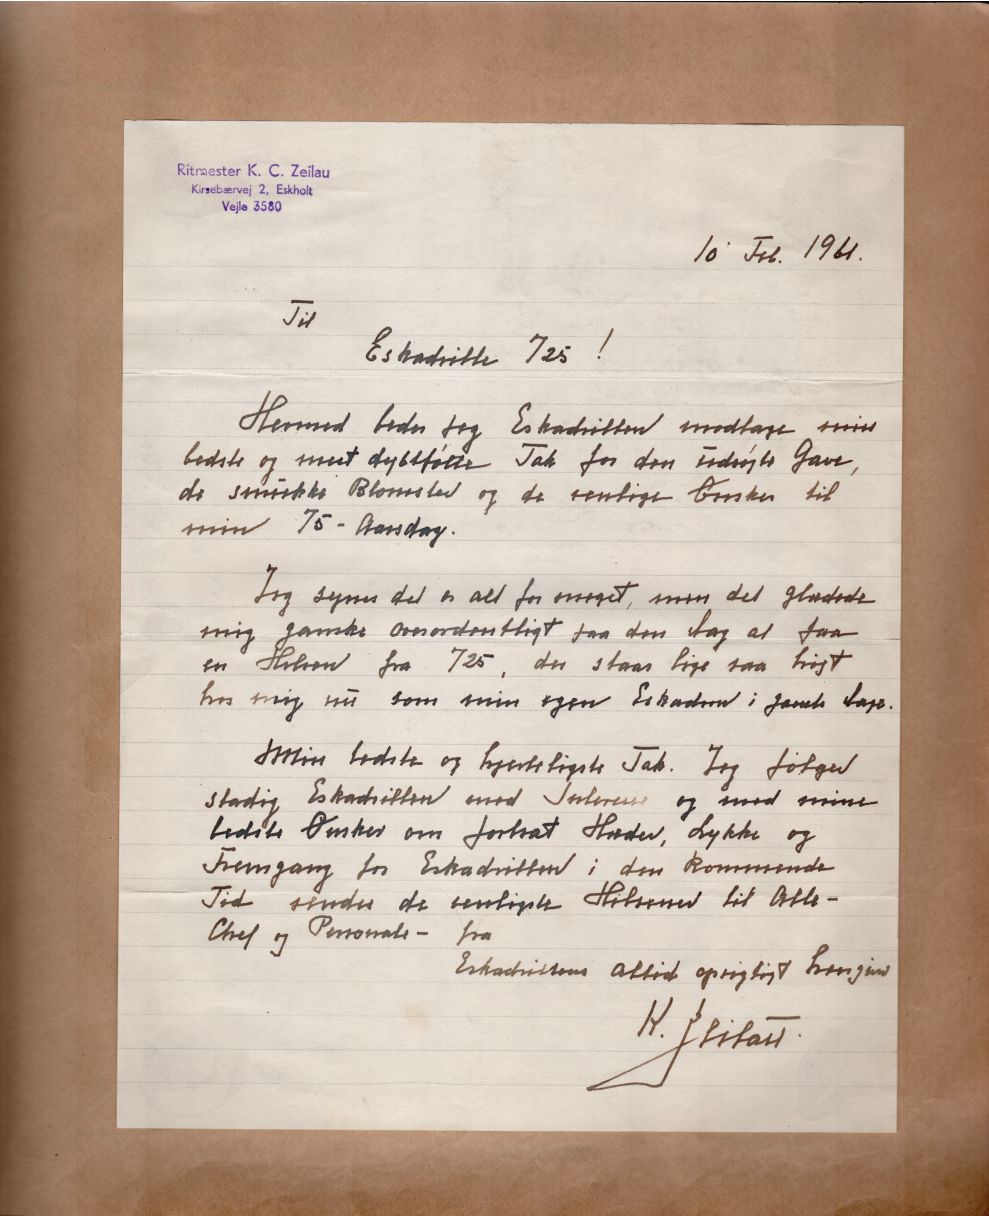 Ritmester K. C. Zeilau
Kirsebærvej 2, Eskholt
Vejle 3580
10 Feb. 1961.
Til
Eskadrille 725 !
Hermed beder jeg Eskadrillen modtage min
bedste og mest dybtfølte Tak for den udsøgte Gave,
de smukke Blomster og de venlige Ønsker til
min 75-Aarsdag.
Jeg synes det er alt for meget, men det glædede
mig ganske overordentligt paa den Dag at faa
en Hilsen fra 725, der staar lige saa højt
hos mig nu som min egen Eskadron i gamle Dage.
Min bedste og hjerteligste Tak. Jeg følger
stadig Eskadrillen med Interesse og med mine
bedste Ønsker om fortsat Hæder, Lykke og
Fremgang for Eskadrillen i den kommende
Tid sendes de venligste Hilsener til Alle-
Chef og Personale- fra
Eskadrillens altid oprigtigt hengivne
K. Zeilau.